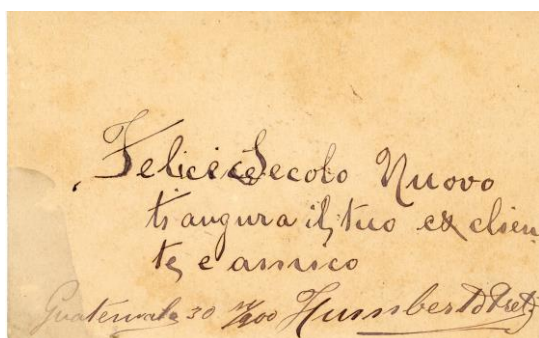 Felice Secolo Nuovo
ti augura il tuo ex clien
te e amico
Guatemala 30 Humberto